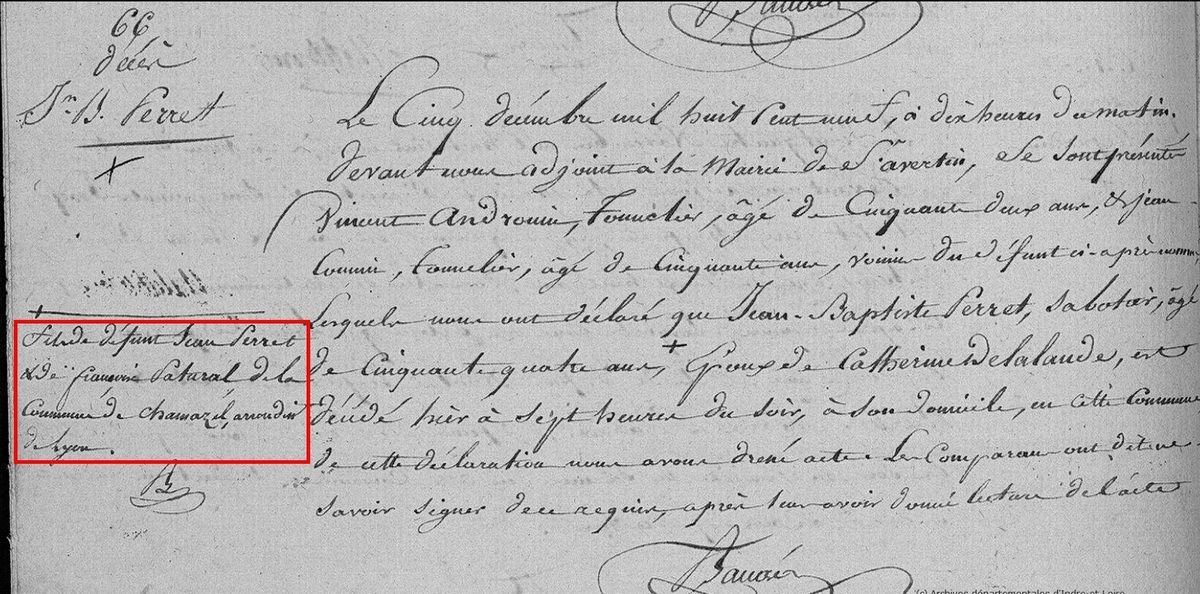 66
décès
Jn. B. Perret
Le Cinq décembre mil huit Cent neuf, à dix heures du matin.
Devant nous adjoint à la Mairie de St. avertin, Se Sont présentés
Vincent Andronin, Tonnelier, âgé de Cinquante deux ans, & jean
Tonnelier, âgé de Cinquante ans, voisins du défunt ci-après nommé
Lesquels nous ont déclaré que Jean-Baptiste Perret, Sabotier, âgé
de Cinquante quatre ans, + Epoux de Catherine Delalande, est
décédé hier à Sept heures du Soir, à Son domicile, en cette Commune
de cette déclaration nous avons dressé acte. Les Comparans ont dit ne
savoir signer de ce requis, après leur avoir donné lecture de l'acte
+
Fils de défunt Jean Perret
& de françoise Pataral de la
Commune de chamazel, arrondist
de Lyon.
B
(c) Archives départementales d'Indre-et-Loire